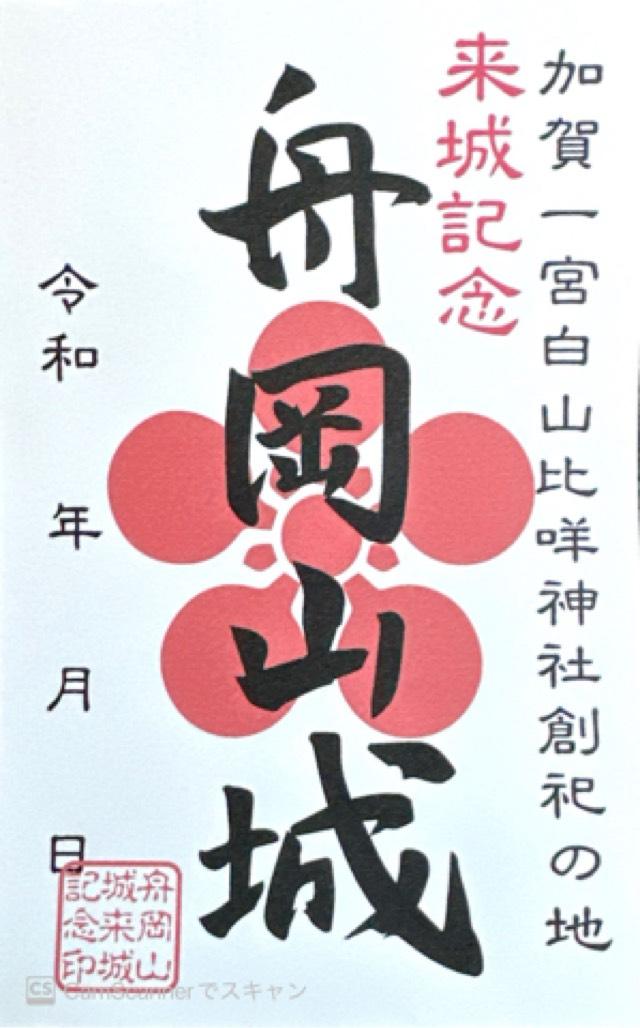 加賀一宮白山比咩神社創祀の地
来城記念
舟岡山城
令和 年 月 日
舟岡山
城来城
記念印
CS CamScannerでスキャン